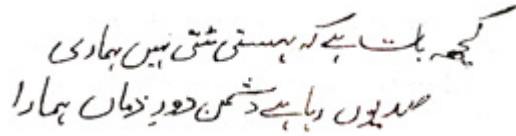 کچھ بات ہے کہ ہستی مٹتی نہیں ہماری
صدیوں رہا ہے دشمن دور زماں ہمارا